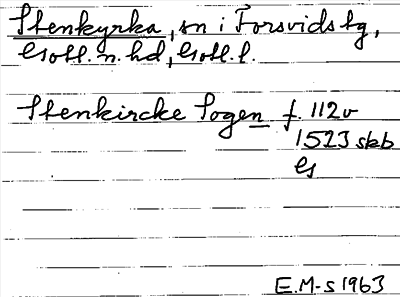 Stenkyrka, sn i Forsvids tg,
Gotl. n. hd, Gotl. l.
Stenkircke Sogen f. 112v
1523 skb
Gs
E.M-s 1963